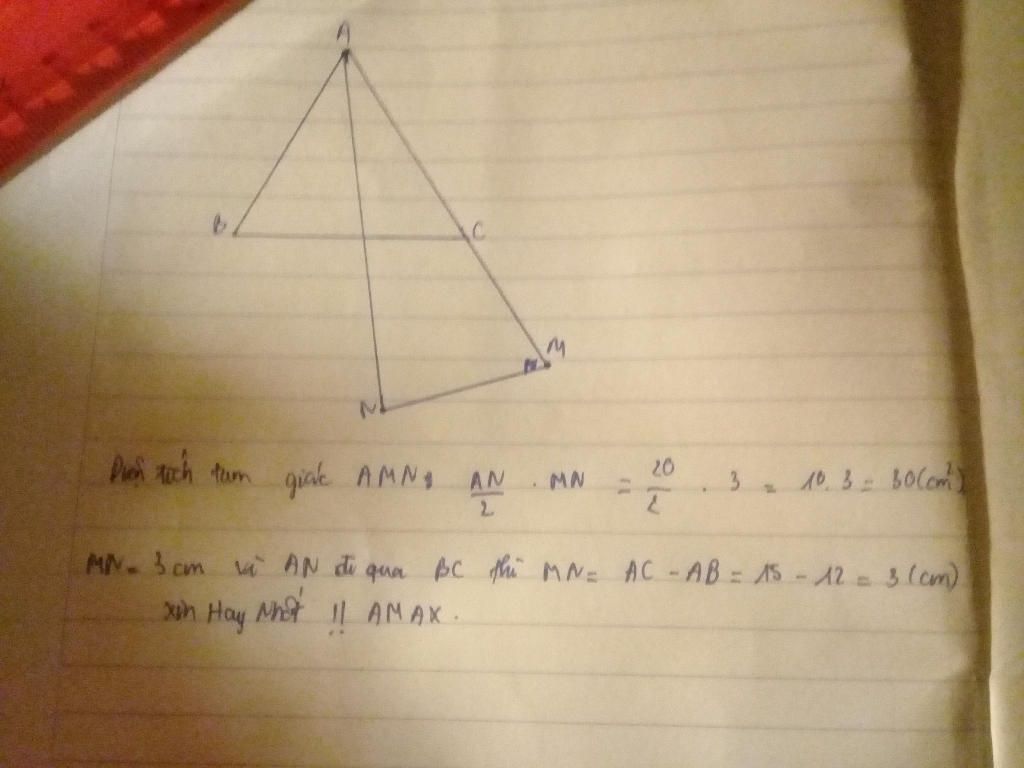 A
B
C
M
N
Diện tích tam giác AMN: AN/2 . MN = 20/2 . 3 = 10.3 = 30(cm²)
MN = 3 cm vì AN đi qua BC thì MN = AC - AB = 15 - 12 = 3 (cm)
xin Hay Nhất !! AMAX.